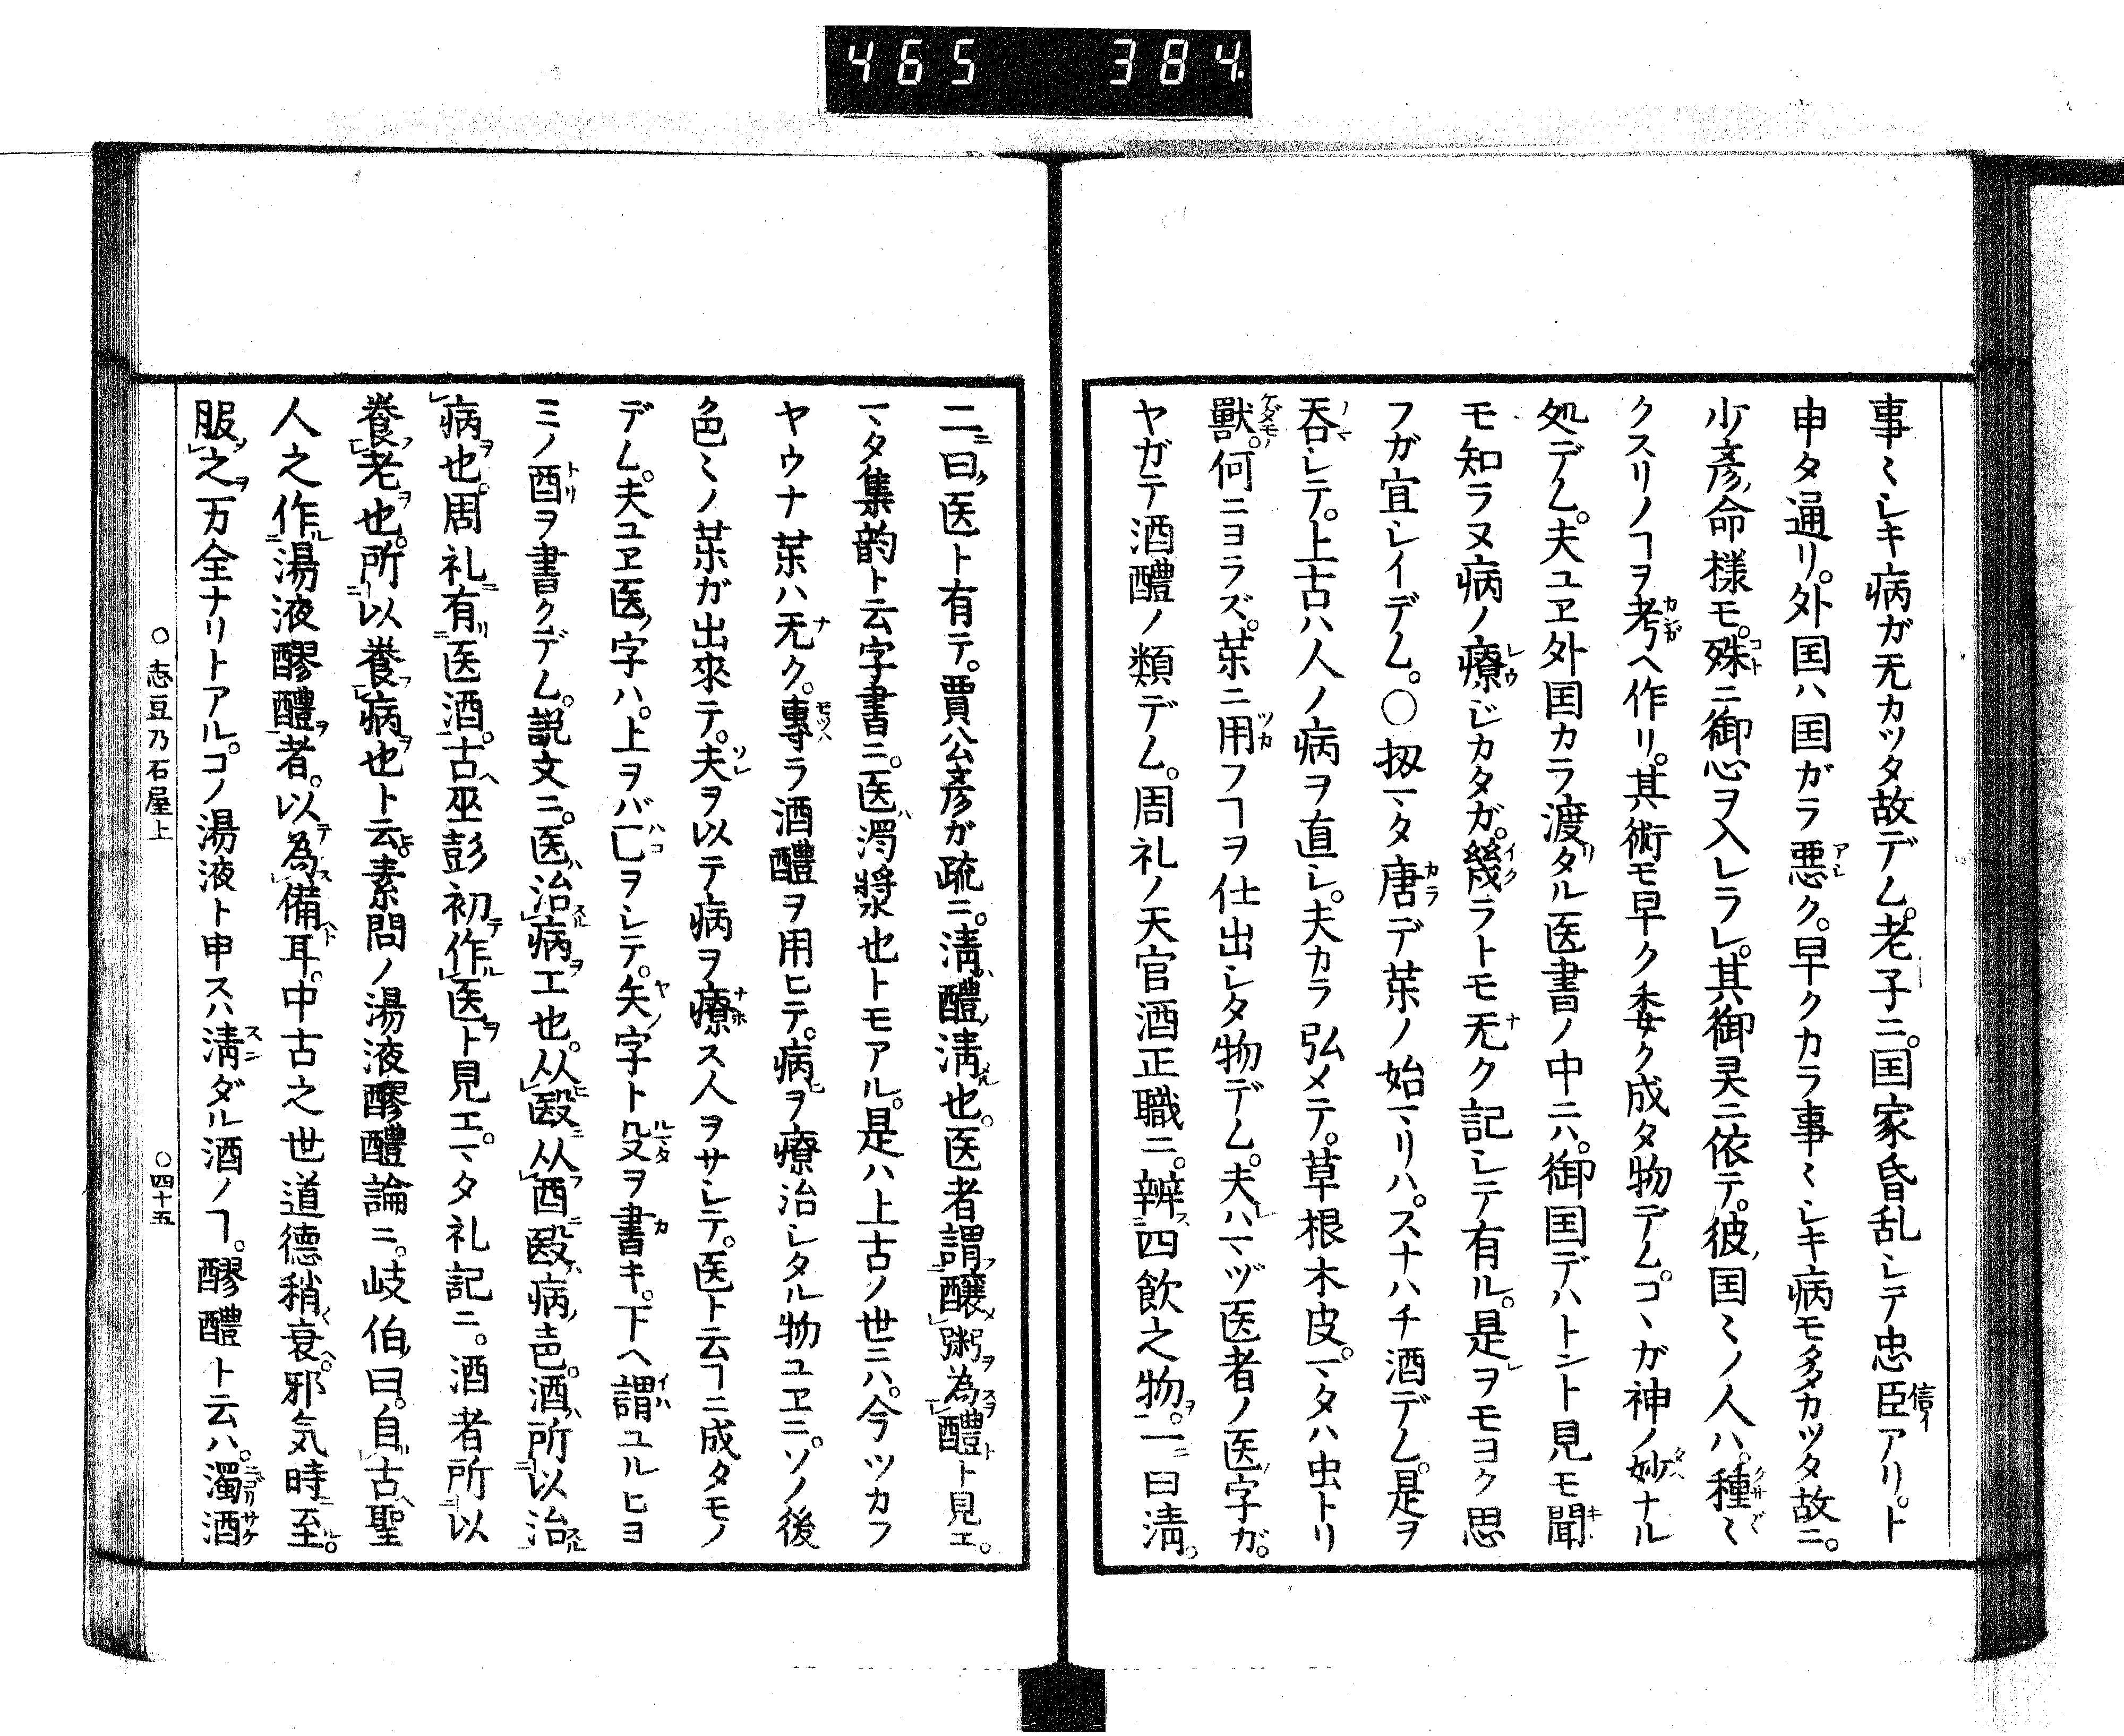 465 384.
事〻シキ病ガ无カツタ故デム。老子ニ。国家昏乱シテ忠臣アリ。ト
申タ通リ。外国ハ国ガラ悪ク。早クカラ事〻シキ病モ多カツタ故ニ。
少彦命様モ。殊ニ御心ヲ入レラレ。其御㚑ニ依テ。彼国〻ノ人ハ。種〻
クスリノヿヲ考ヘ作リ。其術モ早ク委ク成タ物デム。コヽガ神ノ妙ナル
処デム。夫ユヱ外国カラ渡タル医書ノ中ニハ。御国デハトント見モ聞
モ知ラヌ病ノ療ジカタガ。幾ラトモ无ク記シテ有ル。是ヲモヨク思
フガ宜シイデム。○扨マタ唐デ薬ノ始マリハ。スナハチ酒デム。是ヲ
呑シテ。上古ハ人ノ病ヲ直シ。夫カラ弘メテ。草根木皮。マタハ虫トリ
獣。何ニヨラズ。薬ニ用フヿヲ仕出シタ物デム。夫ハマヅ医者ノ医字ガ。
ヤガテ酒醴ノ類デム。周礼ノ天官酒正職ニ。辨四飲之物。一曰清。
二曰医ト有テ。賈公彦ガ疏ニ。清醴清也。医者謂醸粥為醴ト見エ。
マタ集韵ト云字書ニ。医濁漿也トモアル。是ハ上古ノ世ニハ。今ツカフ
ヤウナ薬ハ无ク。専ラ酒醴ヲ用ヒテ。病ヲ療治シタル物ユヱニ。ソノ後
色〻ノ薬ガ出来テ。夫ヲ以テ病ヲ療ス人ヲサシテ。医ト云ヿニ成タモノ
デム。夫ユヱ医字ハ。上ヲバ匚ヲシテ。矢字ト殳ヲ書キ。下ヘ謂ユルヒヨ
ミノ酉ヲ書クデム。説文ニ。医治病工也。从殹从酉殹病声。酒所以治
病也。周礼有医酒。古巫彭初作医ト見エ。マタ礼記ニ。酒者所以
養老也。所以養病也ト云。素問ノ湯液醪醴論ニ。岐伯曰。自古聖
人之作湯液醪醴者。以為備耳。中古之世道徳稍衰。邪気時至。
服之万全ナリトアル。コノ湯液ト申スハ清ダル酒ノヿ。醪醴ト云ハ。濁酒
○志豆乃石屋上 ○四十五